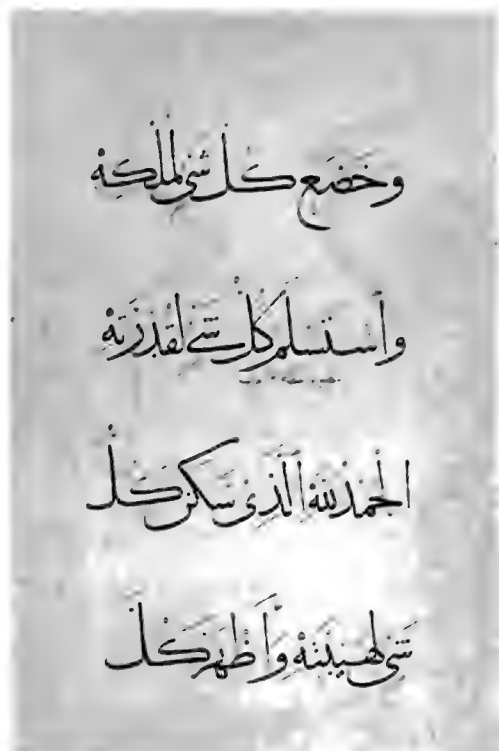 وَخَضَعَ كُلُّ شَيْءٍ لِمُلْكِهِ
وَاسْتَسْلَمَ كُلُّ شَيْءٍ لِقُدْرَتِهِ
اَلْحَمْدُ لِلّٰهِ الَّذِي سَكَنَ كُلُّ
شَيْءٍ لِهَيْبَتِهِ وَأَظْهَرَ كُلَّ